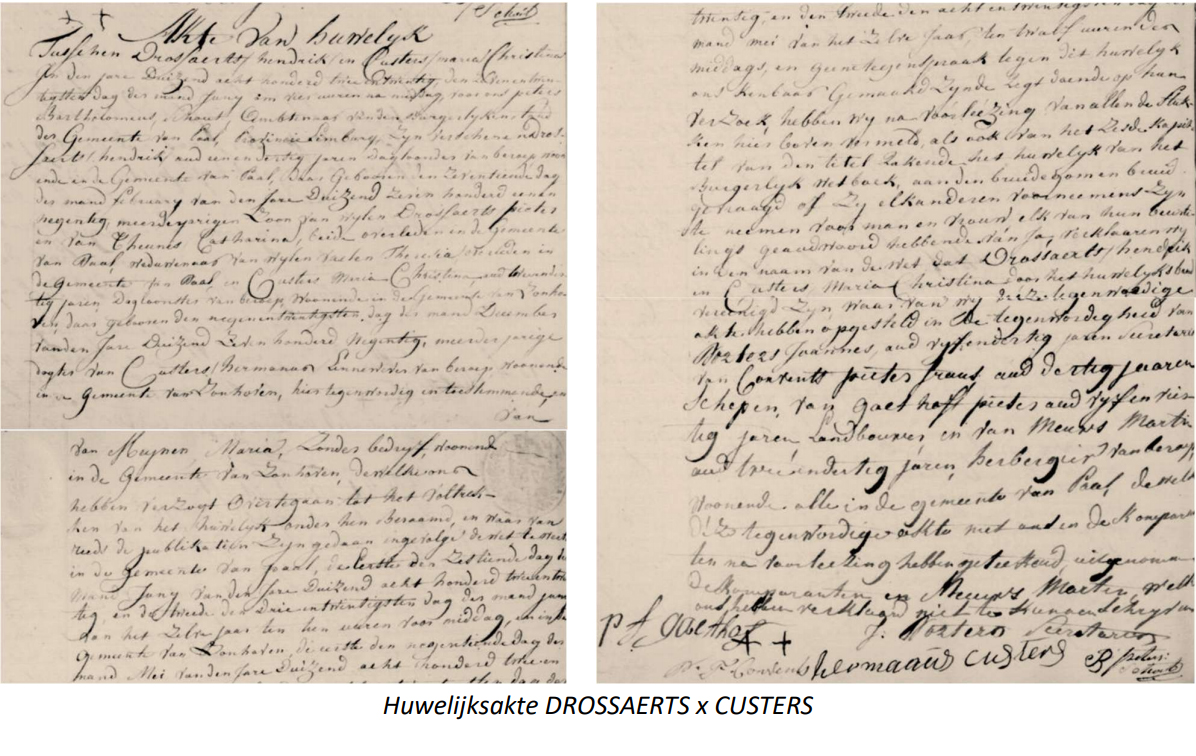 Schuit
Akte van huwelyk
Tusschen Drossaerts/hendrik en Custers/maria Christina
In den jare Duizend acht honderd twee en twintig, den
dag der mand Juny om vier uuren na middag, voor ons peters
Bartholomeus, Schout, Ambtenaar van den Burgerlyken stand
der Gemeente van Paal, Provincie Limburg, Zyn verschenen Dros-
saerts/hendrik oud een en dertig jaren Daglooner van beroep woo-
nende in de Gemeente van Paal, daar Geboren den Zeventiende dag
der mand february van den Jare Duizend Zeven honderd een en
negentig, meerderjarigen Zoon van wylen Drossaerts pieter
en van Theunis Catharina, beide overleden in de gemeente
van Paal, weduwenaar van wylen Vaelen Theresia overleden in
de Gemeente van Paal, en Custers Maria Christina, oud twee en der-
tig jaren, Dagloonster van beroep, woonende in de Gemeente van Zonho-
ven daar geboren den negenentwintigsten dag der mand December
van den Jare Duizend Zeven honderd Negentig, meerderjarige
dogter van Custers/hermanus Linnenwever van beroep woonende
in de Gemeente van Zonhoven, hier tegenwordig en toestemmende en
Van
van Muynen Maria, Zonder bedryf, woonend
in de Gemeente van Zonhoven, dewelke ons
hebben verzogt Overtegaan tot het Voltrek-
ken van het huwelyk onder hen Beraamd, en waar van
reeds de publikatien Zyn gedaan ingevolge de wet te weten
in de Gemeente van Paal, de eerste den Zestiende dag der
mand Juny van den Jare Duizend acht honderd twee en twin-
tig, en de tweede den Drie entwintigsten dag der mand juny
van het Zelve jaar ten tien uuren voor middag, en in de
Gemeente van Zonhoven, de eerste den negentiende dag der
mand Mei van den Jare Duizend acht honderd twee en
twintig, en den tweede den acht en twintigsten dag der
mand mei van het Zelve jaar ten twalf uuren den
middags, en geene tegenspraak tegen dit huwelyk
ons kenbaar Gemaakt Zynde Regt doende op hun
verzoek, hebben wy na voorleezing van allen de Stuk-
ken hier boven vermeld, als ook van het Zesde kapit-
tel van den titel rakende het huwelyk van het
Burgerlyk wetboek, aan den bruidegom en bruid
gevraagd of Zy elkanderen voornemens Zyn
te neemen voor man en vrouw, elk van hun bezon-
lings geantwoord hebbende van Ja, verklaaren wy
in den naam van de wet dat Drossaerts/hendrik
en Custers Maria Christina door het huwelyks band
vereenigd Zyn, waar van wy deze tegenwoordige
akte hebben opgesteld in de tegenwordigheid van
Wouters Joannes, oud vyfendertig jaren Secretaris
van Convents pieter frans oud dertig jaaren
Schepen, van Goethaff pieter oud vyf en vier-
tig jaren Landbouwer en van Meuws Martin
oud drieendertig jaren, herbergier van beroep,
woonende alle in de gemeente van Paal, de welke
deze tegenwordige akte met ons en de kompara-
ten na voorleezing hebben geteekend, uitgenomen
de komparanten en Meuws Martin, welke
ons hebben verklaard niet te kunnen schryven
p f Goethaf J. Wouters Secretaris
P. F. Convents hermaanus Custers B peters
Schout
Huwelijksakte DROSSAERTS x CUSTERS